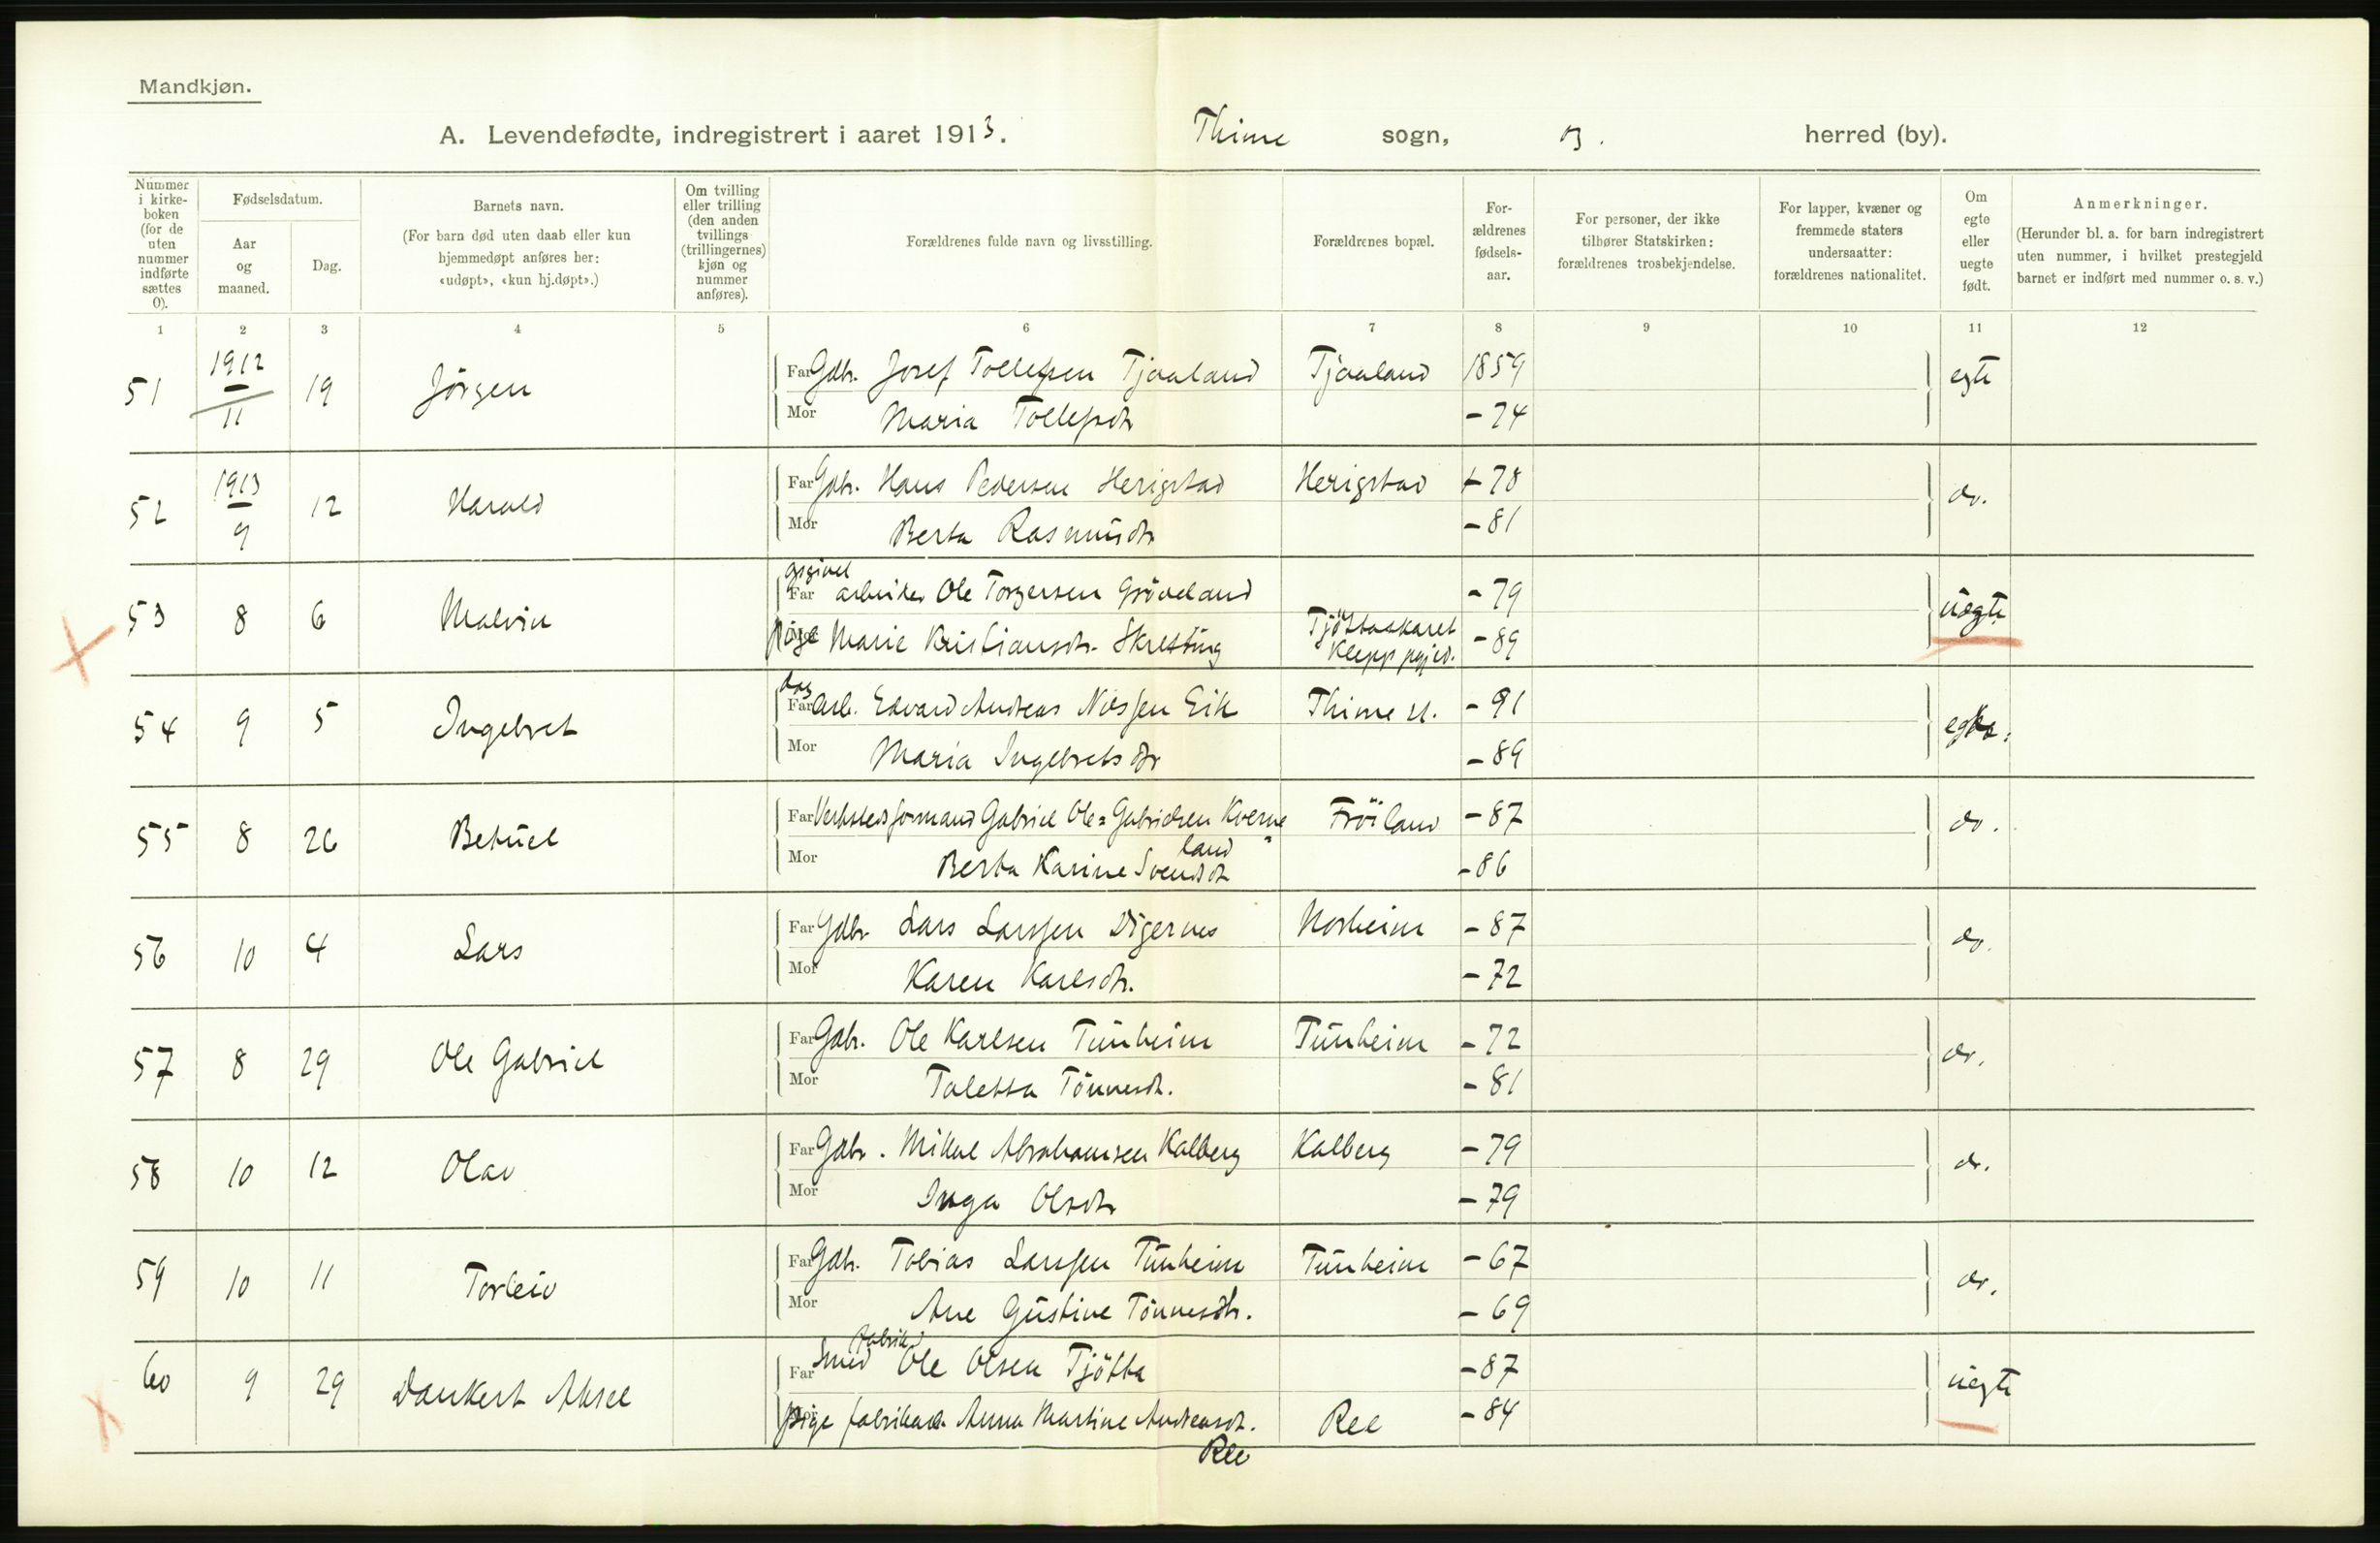 Mandkjøn.
A. Levendefødte, indregistrert i aaret 1913. Thime sogn, herred (by).
Nummer i kirke-boken (for de uten nummer indførte sættes 0).
Fødselsdatum.
Aar og maaned.
Dag.
Barnets navn.
(For barn død uten daab eller kun hjemmedøpt anføres her: «udøpt», «kun hj.døpt».)
Om tvilling eller trilling (den anden tvillings (trillingernes) kjøn og nummer anføres).
Forældrenes fulde navn og livsstilling.
Forældrenes bopæl.
For-ældrenes fødsels-aar.
For personer, der ikke tilhører Statskirken: forældrenes trosbekjendelse.
For lapper, kvæner og fremmede staters undersaatter: forældrenes nationalitet.
Om egte eller uegte født.
Anmerkninger.
(Herunder bl. a. for barn indregistrert uten nummer, i hvilket prestegjeld barnet er indført med nummer o. s. v.)
1 2 3 4 5 6 7 8 9 10 11 12
51 1912 11 19 Jörgen Far Gdbr. Josef Tollefsen Tjaaland Tjaaland 1859 egte
Mor Maria Tollefsdtr -74
52 1913 9 12 Harald Far Gdbr. Hans Pedersen Herigstad Herigstad -78 do.
Mor Berta Rasmusdtr -81
53 8 6 Malvin Far arbeider Ole Torgersen Gröveland -79 uegte
Mor pige Marie Kristiansdtr. Skretting Tjöttaskaret Klepp pgjld. -89
54 9 5 Ingebret Far dag arb. Edvard Andreas Nilssen Eik Thime st. -91 egte
Mor Maria Ingebretsdtr -89
55 8 26 Betuel Far Verkstedsformand Gabriel Ole=Gabrielsen Kverne Fröiland -87 do.
land
Mor Berta Karine Svendsdtr -86
56 10 4 Lars Far Gdbr Lars Larssen Digernes Norheim -87 do.
Mor Karen Karlsdtr. -72
57 8 29 Ole Gabriel Far Gdbr. Ole Karlsen Tunheim Tunheim -72 do.
Mor Taletta Tönnesdtr. -81
58 10 12 Olav Far Gdbr. Mikal Abrahamsen Kalberg Kalberg -79 do.
Mor Inga Olsdtr -79
59 10 11 Torleiv Far Gdbr. Tobias Larssen Tunheim Tunheim -67 do.
Mor Ane Gustine Tönnesdtr. -69
60 9 29 Dankert Aksel Far fabrik Smed Ole Olsen Tjötta -87 uegte
Mor pige fabrikarb. Anna Martine Andreasdtr. Ree -84
Ree